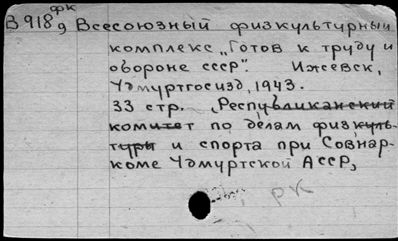 фк
В 918 д Всесоюзный физкультурный
комплекс „Готов к труду и
обороне СССР". Ижевск,
Удмуртгосизд, 1943.
33 стр. (Республиканский
комитет по делам физкуль-
туры и спорта при Совнар-
коме Удмуртской АССР)
РК